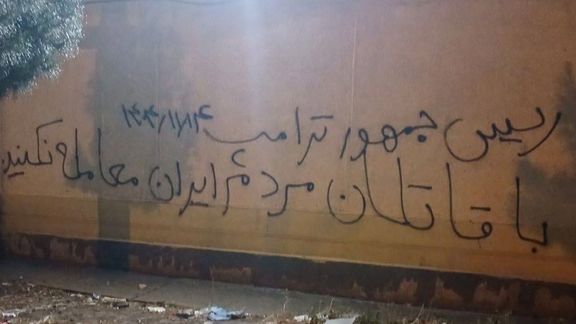 رییس جمهور ترامپ ۱۴۰۴/۱۱/۱۴
با قاتلان مردم ایران معامله نکنید